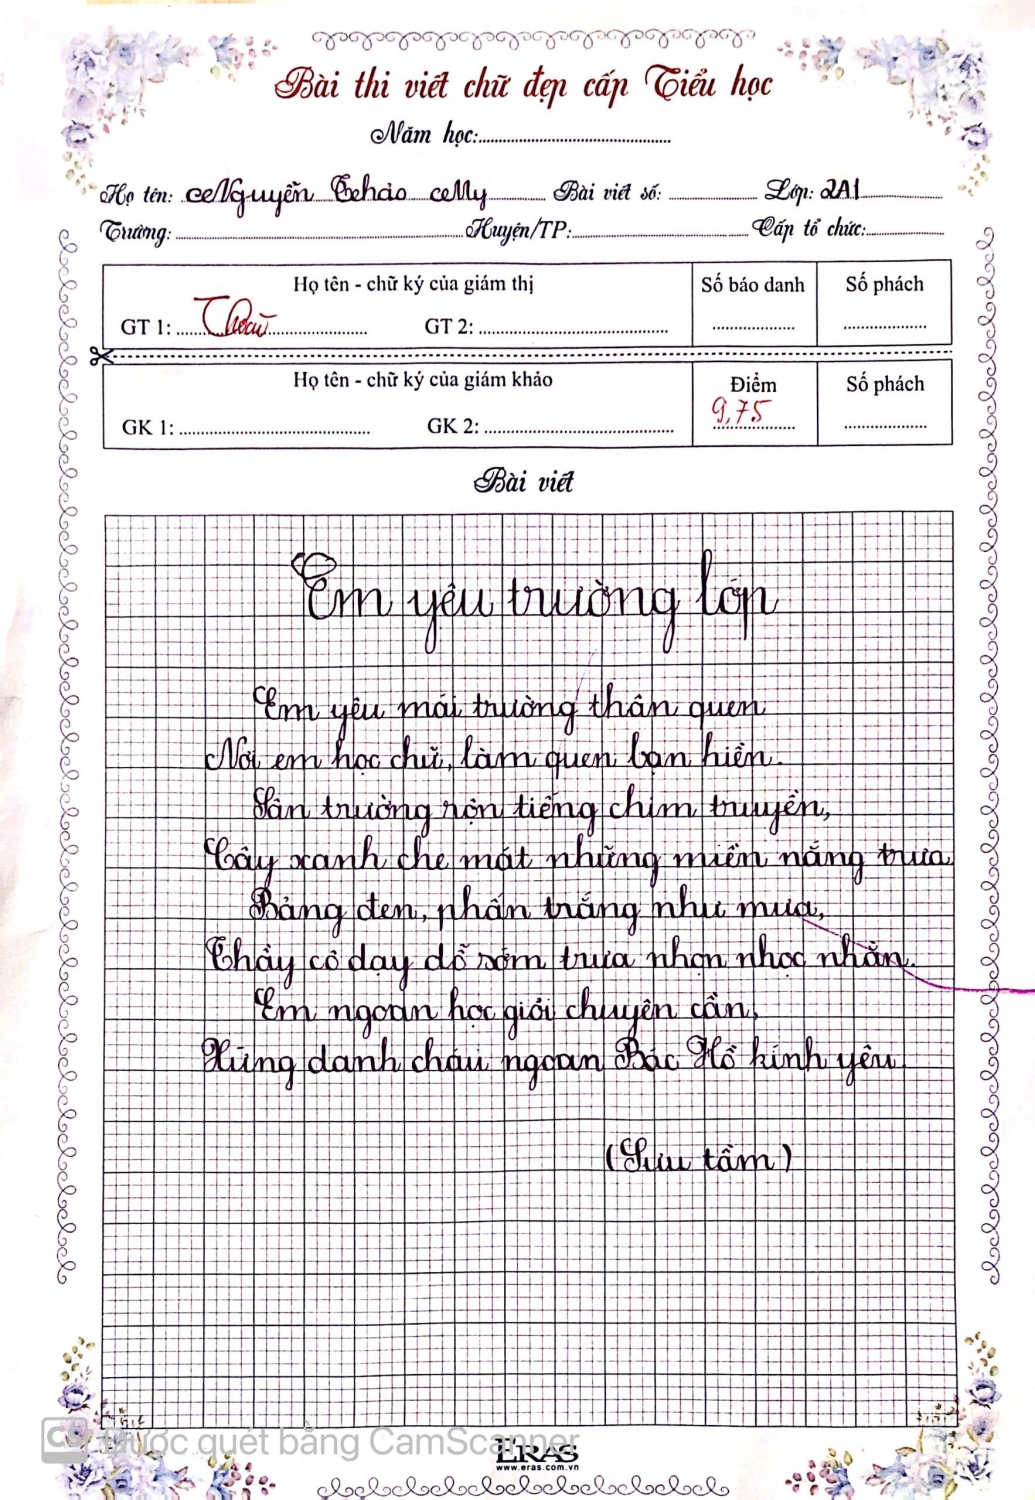 Bài thi viết chữ đẹp cấp Tiểu học
Năm học:
Họ tên: Nguyễn Thảo My Bài viết số: Lớp: 2A1
Trường: Huyện/TP: Cấp tổ chức:
Họ tên - chữ ký của giám thị Số báo danh Số phách
GT 1: GT 2:
Họ tên - chữ ký của giám khảo Điểm Số phách
9,75
GK 1: GK 2:
Bài viết
Em yêu trường lớp
Em yêu mái trường thân quen
Nơi em học chữ, làm quen bạn hiền.
Sân trường rộn tiếng chim truyền,
Cây xanh che mát những miền nắng trưa
Bảng đen, phấn trắng như mưa,
Thầy cô dạy dỗ sớm trưa nhọn nhọc nhằn.
Em ngoan học giỏi chuyên cần,
Xứng danh cháu ngoan Bác Hồ kính yêu.
(Sưu tầm)
CS Được quét bằng CamScanner
ERAS
www.eras.com.vn